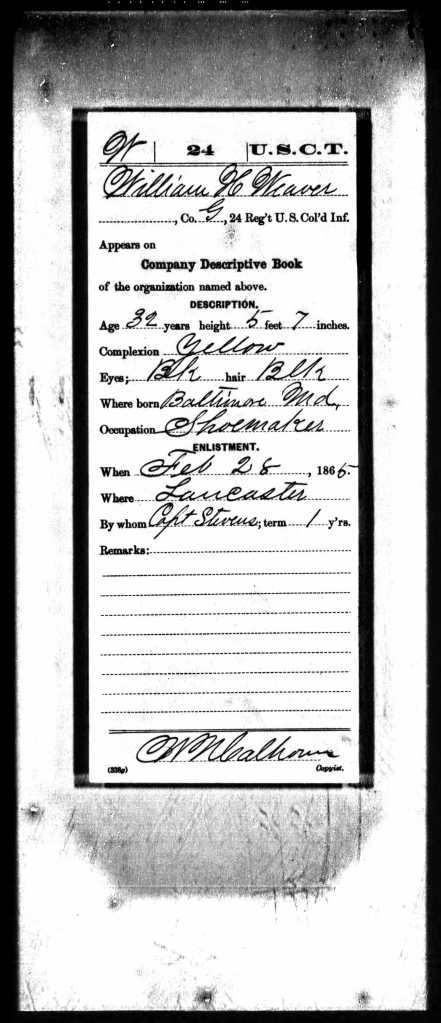 W | 24 | U.S.C.T.
William H Weaver
, Co. G, 24 Reg't U. S. Col'd Inf.
Appears on
Company Descriptive Book
of the organization named above.
DESCRIPTION.
Age 32 years height 5 feet 7 inches.
Complexion Yellow
Eyes; Blk hair Blk
Where born Baltimore Md,
Occupation Shoemaker
ENLISTMENT.
When Feb 28, 1865.
Where Lancaster
By whom Capt Stevens; term 1 y'rs.
Remarks:
Calhoun
(338g) Copyist.